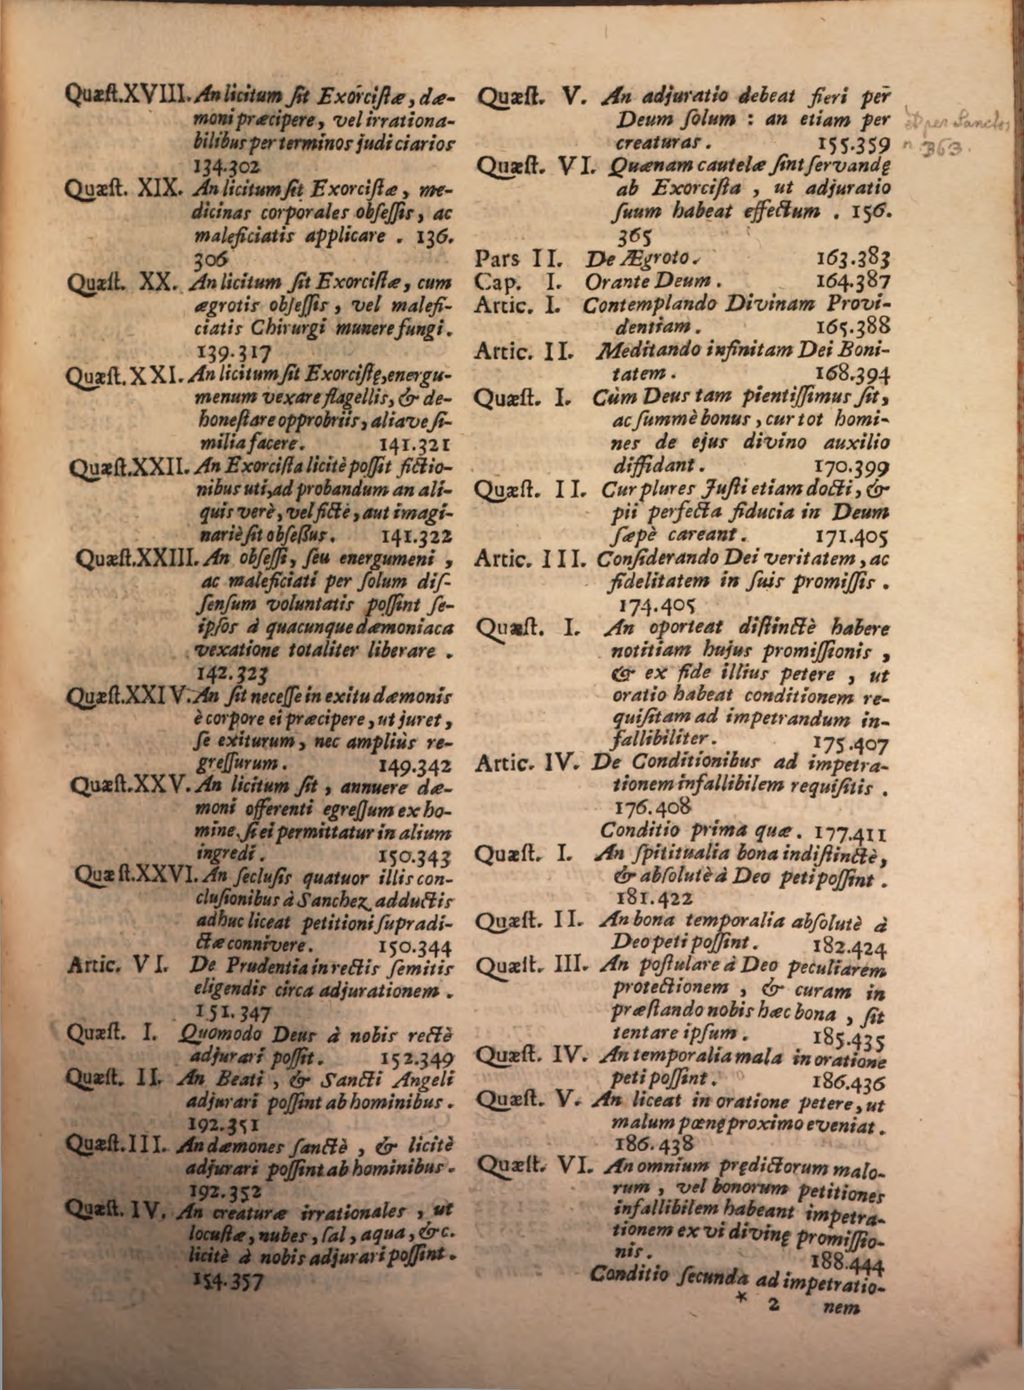 Quæſt.XVIII. An licitum ſit Exorciſtæ, dæ-
moni præcipere, vel irrationa-
bilibus per terminos judiciarios
134.302
Quæſt. XIX. An licitum ſit Exorciſtæ, me-
dicinas corporales obſeſſis, ac
maleficiatis applicare. 136.
306
Quæſt. XX. An licitum ſit Exorciſtæ, cum
ægrotis obſeſſis, vel malefi-
ciatis Chirurgi munere fungi.
139.317
Quæſt. XXI. An licitum ſit Exorciſtę, energu-
menum vexare flagellis, & de-
honeſtare opprobriis, aliave ſi-
milia facere. 141.321
Quæſt.XXII. An Exorciſta licitè poſſit fictio-
nibus uti, ad probandum an ali-
quis verè, vel fictè, aut imagi-
nariè ſit obſeſſus. 141.322
Quæſt.XXIII. An obſeſſi, ſeu energumeni,
ac maleficiati per ſolum diſ-
ſenſum voluntatis poſſint ſe-
ipſos à quacunque dæmoniaca
vexatione totaliter liberare.
142.323
Quæſt.XXIV. An ſit neceſſe in exitu dæmonis
è corpore ei præcipere, ut juret,
ſe exiturum, nec ampliùs re-
greſſurum. 149.342
Quæſt.XXV. An licitum ſit, annuere dæ-
moni offerenti egreſſum ex ho-
mine, ſi ei permittatur in alium
ingredi. 150.343
Quæſt.XXVI. An ſecluſis quatuor illis con-
cluſionibus à Sanchez adductis
adhuc liceat petitioni ſupradi-
ctæ connivere. 150.344
Artic. VI. De Prudentia in rectis ſemitis
eligendis circa adjurationem.
151.347
Quæſt. I. Quomodo Deus à nobis rectè
adjurari poſſit. 152.349
Quæſt. II. An Beati, & Sancti Angeli
adjurari poſſint ab hominibus.
192.351
Quæſt.III. An dæmones ſanctè, & licitè
adjurari poſſint ab hominibus.
192.352
Quæſt. IV. An creaturæ irrationales, ut
locuſtæ, nubes, ſal, aqua, &c.
licitè à nobis adjurari poſſint.
154.357
Quæſt. V. An adjuratio debeat fieri per
Deum ſolum : an etiam per
creaturas. 155.359
et per Sanctos
n 363.
Quæſt. VI. Quænam cautelæ ſint ſervandę
ab Exorciſta, ut adjuratio
ſuum habeat effectum. 156.
365
Pars II. De Ægroto. 163.383
Cap. I. Orante Deum. 164.387
Artic. I. Contemplando Divinam Provi-
dentiam. 165.388
Artic. II. Meditando infinitam Dei Boni-
tatem. 168.394
Quæſt. I. Cùm Deus tam pientiſſimus ſit,
ac ſummè bonus, cur tot homi-
nes de ejus divino auxilio
diffidant. 170.399
Quæſt. II. Cur plures Juſti etiam docti, &
pii perfecta fiducia in Deum
ſæpè careant. 171.405
Artic. III. Conſiderando Dei veritatem, ac
fidelitatem in ſuis promiſſis.
174.405
Quæſt. I. An oporteat diſtinctè habere
notitiam hujus promiſſionis,
& ex fide illius petere, ut
oratio habeat conditionem re-
quiſitam ad impetrandum in-
fallibiliter. 175.407
Artic. IV. De Conditionibus ad impetra-
tionem infallibilem requiſitis.
176.408
Conditio prima quæ. 177.411
Quæſt. I. An ſpititualia bona indiſtinctè,
& abſolutè à Deo peti poſſint.
181.422
Quæſt. II. An bona temporalia abſolutè à
Deo peti poſſint. 182.424
Quæſt. III. An poſtulare à Deo peculiarem
protectionem, & curam in
præſtando nobis hæc bona, ſit
tentare ipſum. 185.435
Quæſt. IV. An temporalia mala in oratione
peti poſſint. 186.436
Quæſt. V. An liceat in oratione petere, ut
malum pœnę proximo eveniat.
186.438
Quæſt. VI. An omnium prędictorum malo-
rum, vel bonorum petitiones
infallibilem habeant impetra-
tionem ex vi divinę promiſſio-
nis. 188.444
Conditio ſecunda ad impetratio-
* 2 nem